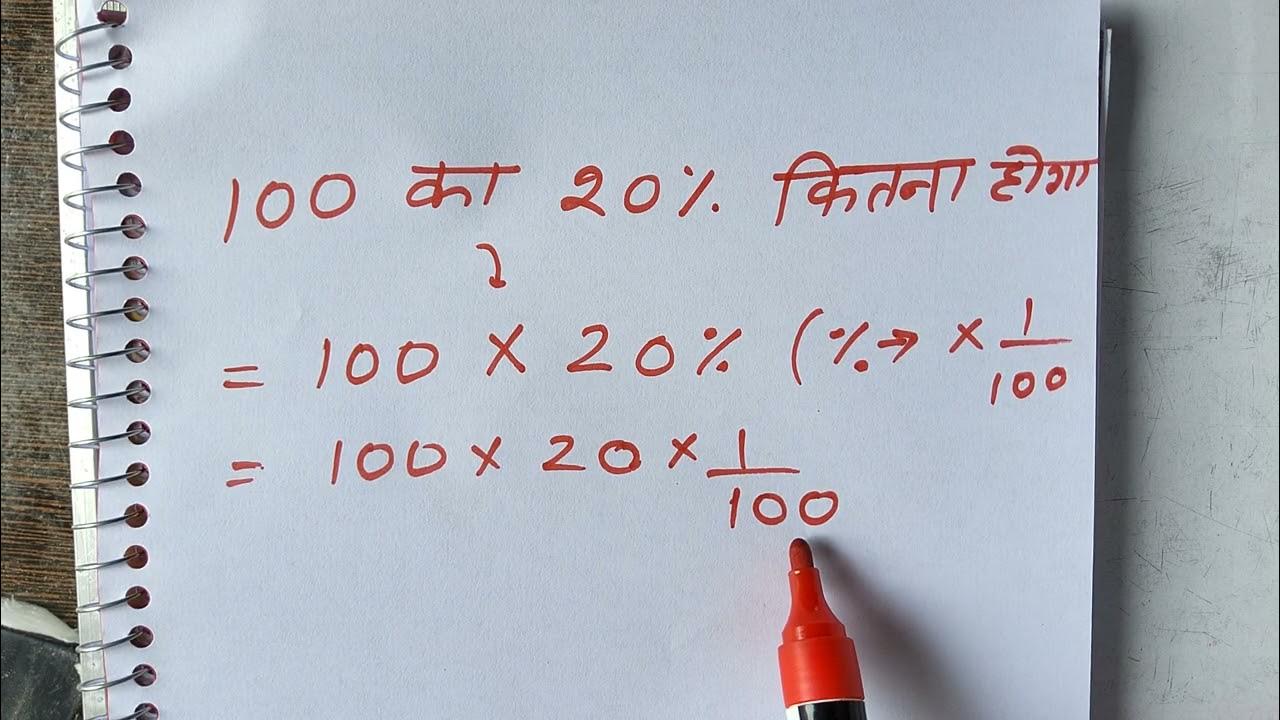 100 का 20% कितना होगा
= 100 × 20% (% → × 1/100
= 100 × 20 × 1/100